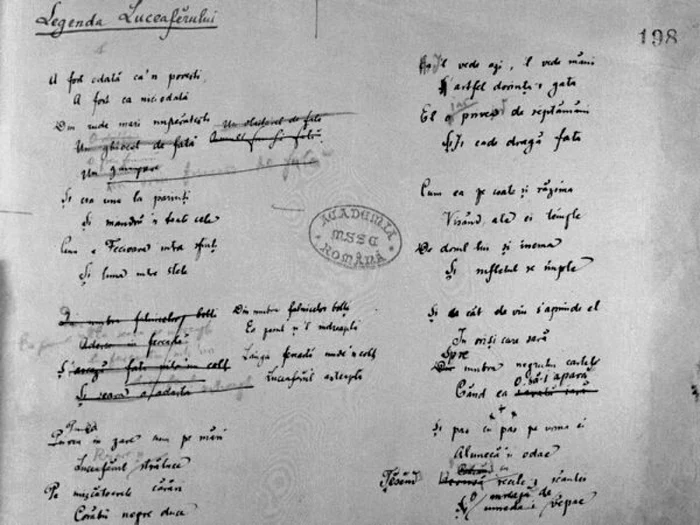 Legenda Luceafărului
198
A fost odată ca'n povesti,
A fost ca niciodată
Din rude mari împărătesti
Un ghiocel de fată
Un
Și era una la parinți
Și mandră 'n toate cele
Cum e Fecioara intre sfinți
Și luna intre stele
Din umbra falnicelor bolti
Adesea in fereastă
Din umbra falnicelor bolti
Ea pasul și'l indreaptă
Lângă fereastă unde'n colt
Luceafărul asteaptă
Privea in zare cum pe mări
Luceafărul străluce
Pe mișcătoarele cărări
Corăbii negre duce
Il vede azi, 'l vede mâni
Astfel dorința-i gata
El privind de septămâni
Îi cade dragă fata
Cum ea pe coate-și răzima
Visând, ale ei tâmple
De dorul lui și inema
Și sufletul se împle
Și de cât de viu s'aprinde el
In orișicare sară
Spre umbra negrului castel
Când ea O să-i apară
Și pas cu pas pe urma ei
Alunecă 'n odae
Țesând
recele-i scântei
O mreajă de văpae
ACADEMIA
MSSE
ROMÂNĂ